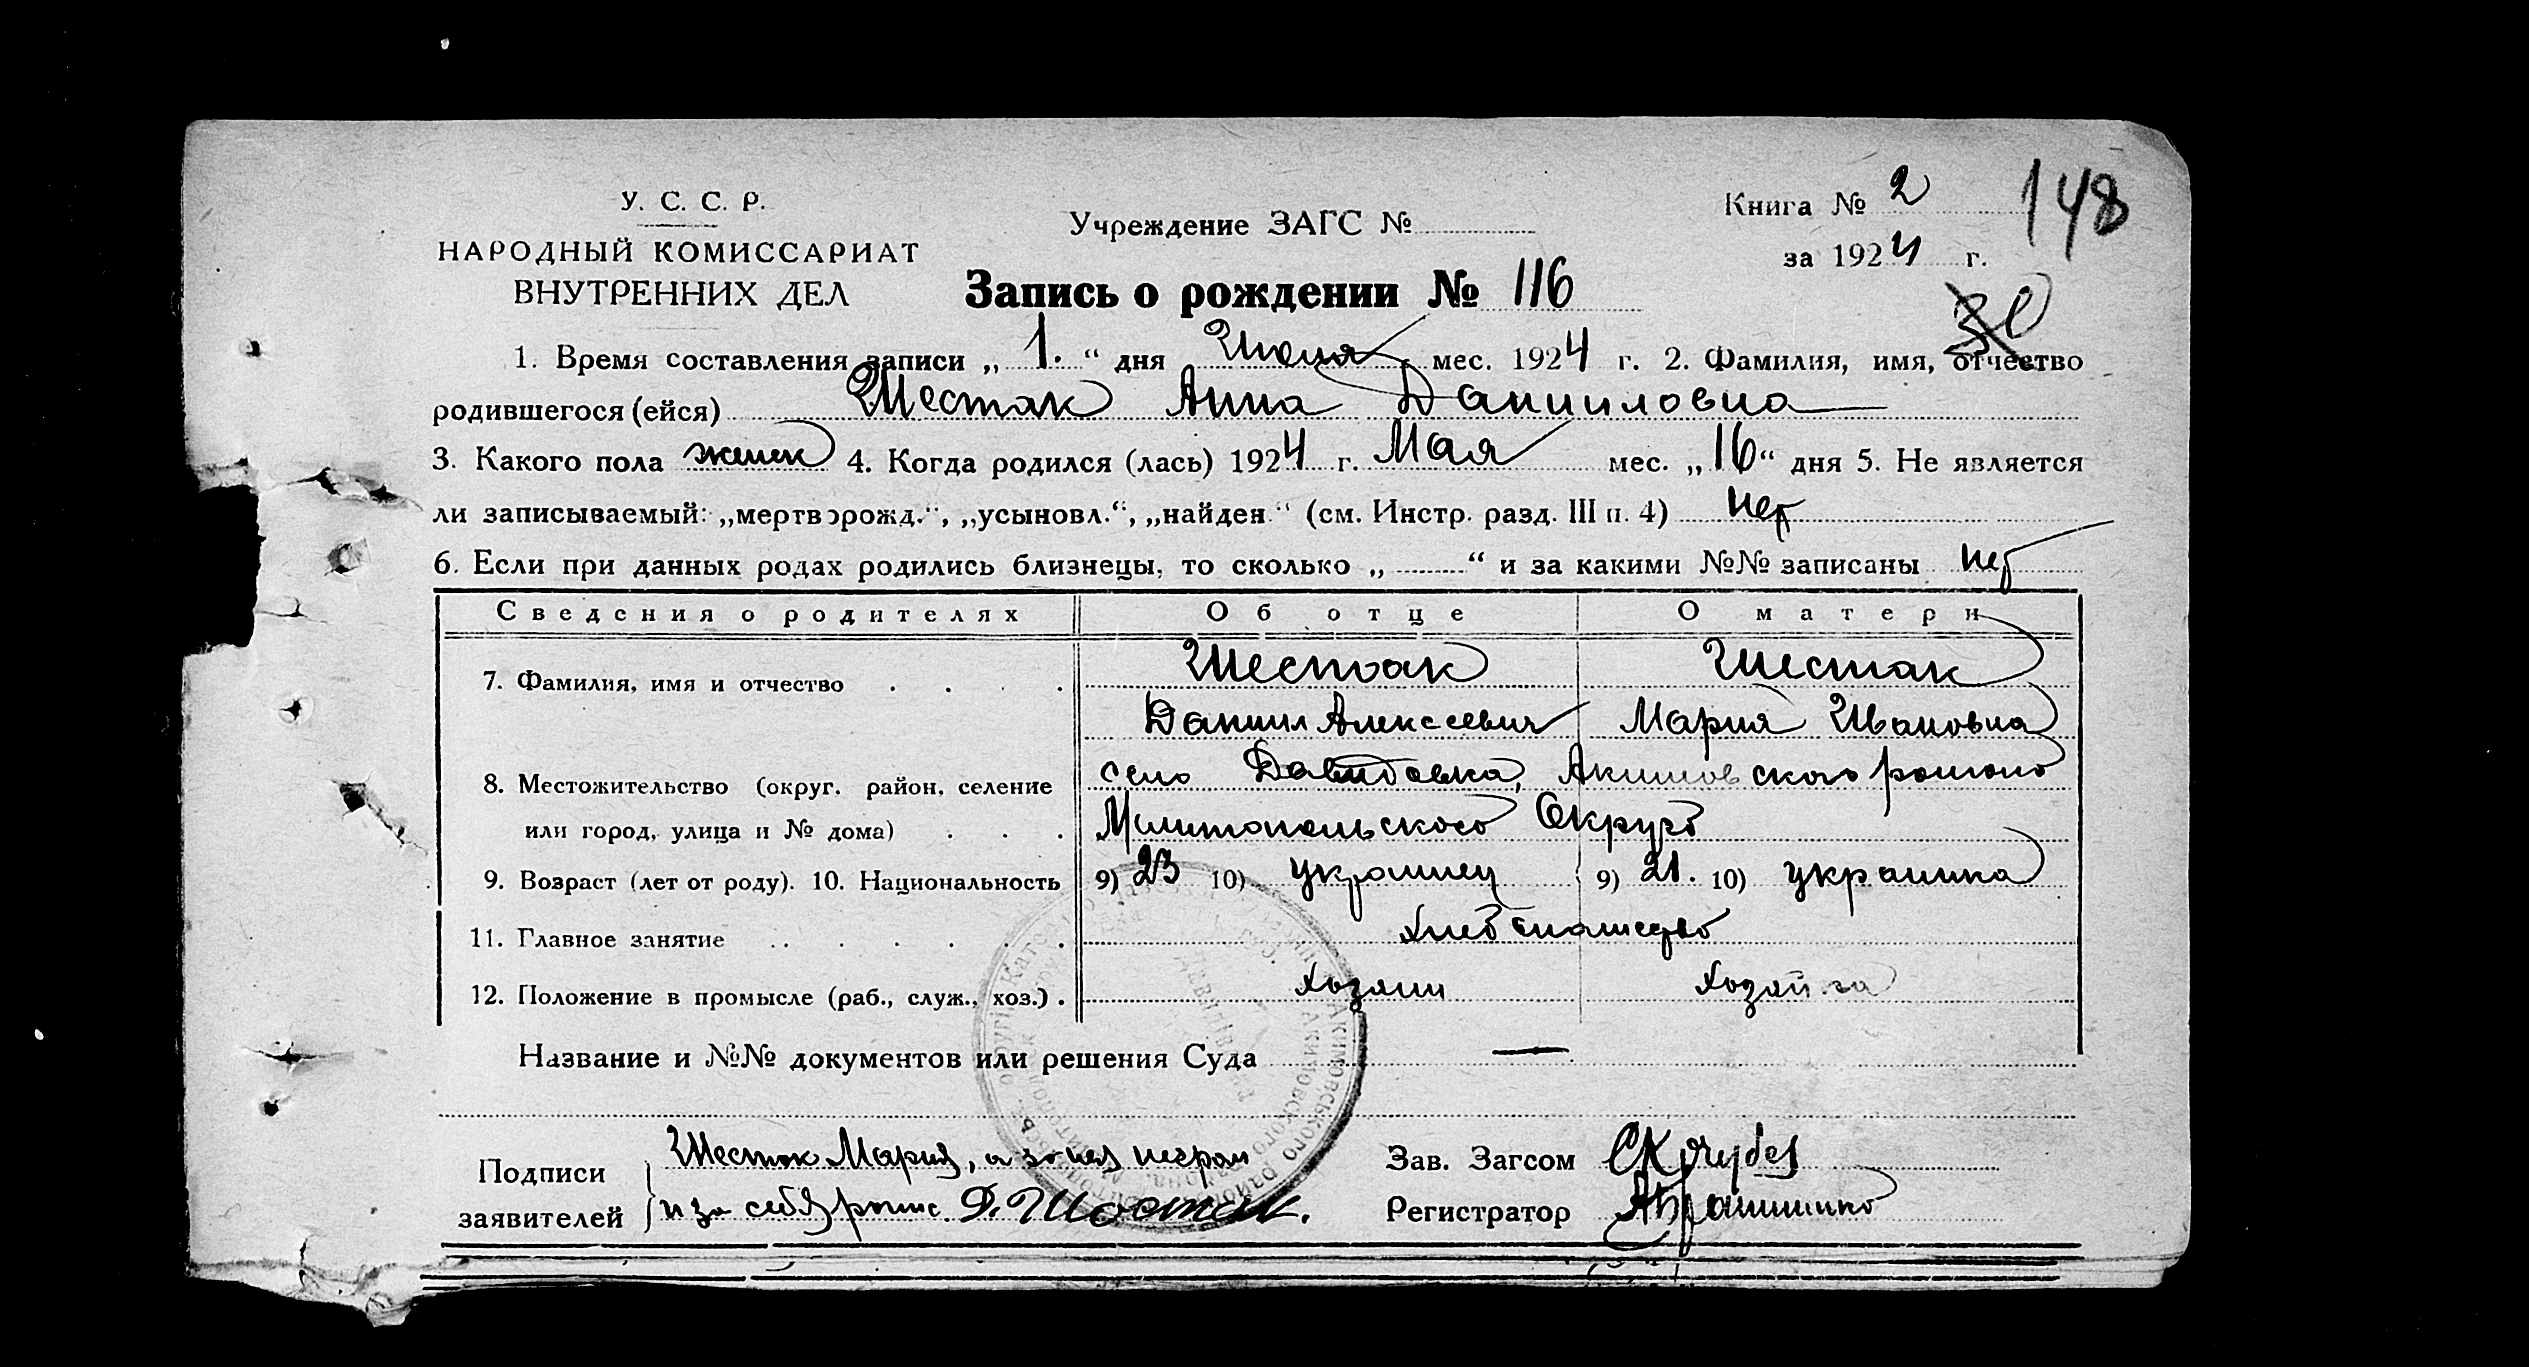 У. С. С. Р.
НАРОДНЫЙ КОМИССАРИАТ
ВНУТРЕННИХ ДЕЛ
Учреждение ЗАГС №
Книга № 2
148
за 1924 г.
Запись о рождении № 116
30
1. Время составления записи „ 1. “ дня Июля мес. 1924 г. 2. Фамилия, имя, отчество
родившегося (ейся) Шестак Анна Данииловна
3. Какого пола женск 4. Когда родился (лась) 1924 г. Мая мес. „16“ дня 5. Не является
ли записываемый: „мертворожд.“, „усыновл.“, „найден“ (см. Инстр. разд. III п. 4) нет
6. Если при данных родах родились близнецы, то сколько „ “ и за какими №№ записаны нет
Сведения о родителях Об отце О матери
7. Фамилия, имя и отчество . . . . Шестак Шестак
Даниил Алексеевич Мария Ивановна
8. Местожительство (округ, район, селение село Давидовка, Акимовского района
или город, улица и № дома) . . . Мелитопольского Округа
9. Возраст (лет от роду). 10. Национальность 9) 23 10) украинец 9) 21. 10) украинка
11. Главное занятие . . . . . . . Хлебопашество
12. Положение в промысле (раб., служ., хоз.) . Хозяин Хозяйка
Название и №№ документов или решения Суда —
Подписи заявителей
Шестак Мария, а за нея неграм
и за себя распис. Д. Шестак.
Зав. Загсом СКочубей
Регистратор